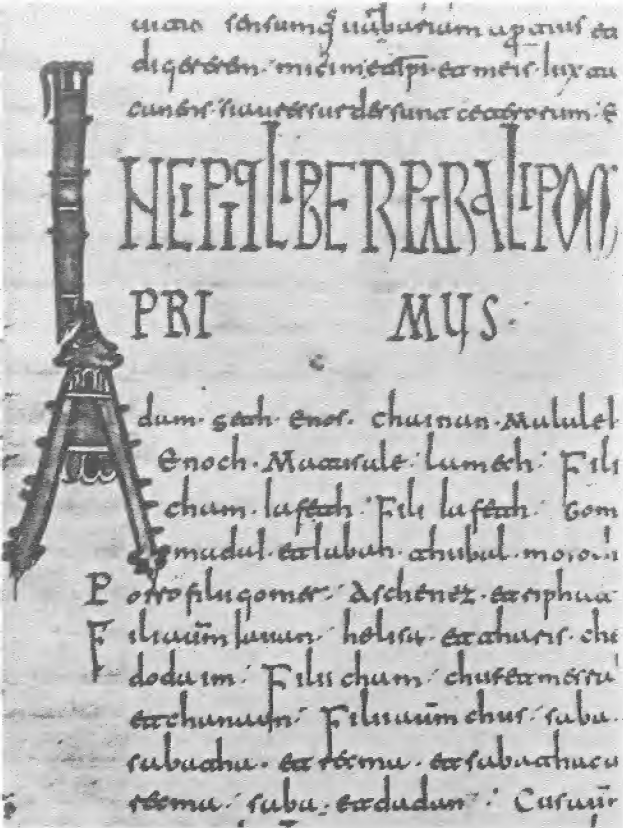 sensumq
digererem · micimetipsi · et meis · iux
canens · si aures surde sunt ceterorum : E
INCIPIT LIBER PARALIPOM
PRIMUS ·
Adam · seth · Enos · chainan · Malalel
Enoch · Matusale · lamech : Fili
cham · Iafeth : Fili Iafeth : Gom
madai · et iaban · thubal · mosoch
Porro filii gomer : Aschenez · et riphat
Filii aūm Iauan : helisa · et tharsis · che
dodaim : Filii cham : chus et mesra
et chanaan : Filii aūm chus : saba ·
sabatha · et regma · et sabathaca
regma : saba · et dadan :